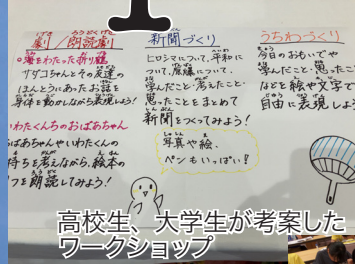 劇／朗読劇
げき ろうどくげき
○海をわたった折り鶴
サダコちゃんとその友達の
ほんとうにあったお話を
身体を動かしながら表現しよう!
いわたくんちのおばあちゃん
ばあちゃんやいわたくんの
持ちを考えながら、絵本の
つを朗読してみよう!
新聞づくり
しんぶん
ヒロシマについて、平和に
ついて、原爆について、
学んだこと・考えたこと・
思ったことをまとめて
新聞をつくってみよう!
写真や絵、
ペンもいっぱい!
うちわづくり
今日のおもいでや
学んだこと、思ったこ
などを絵や文字で
自由に表現しよう
高校生、大学生が考案した
ワークショップ